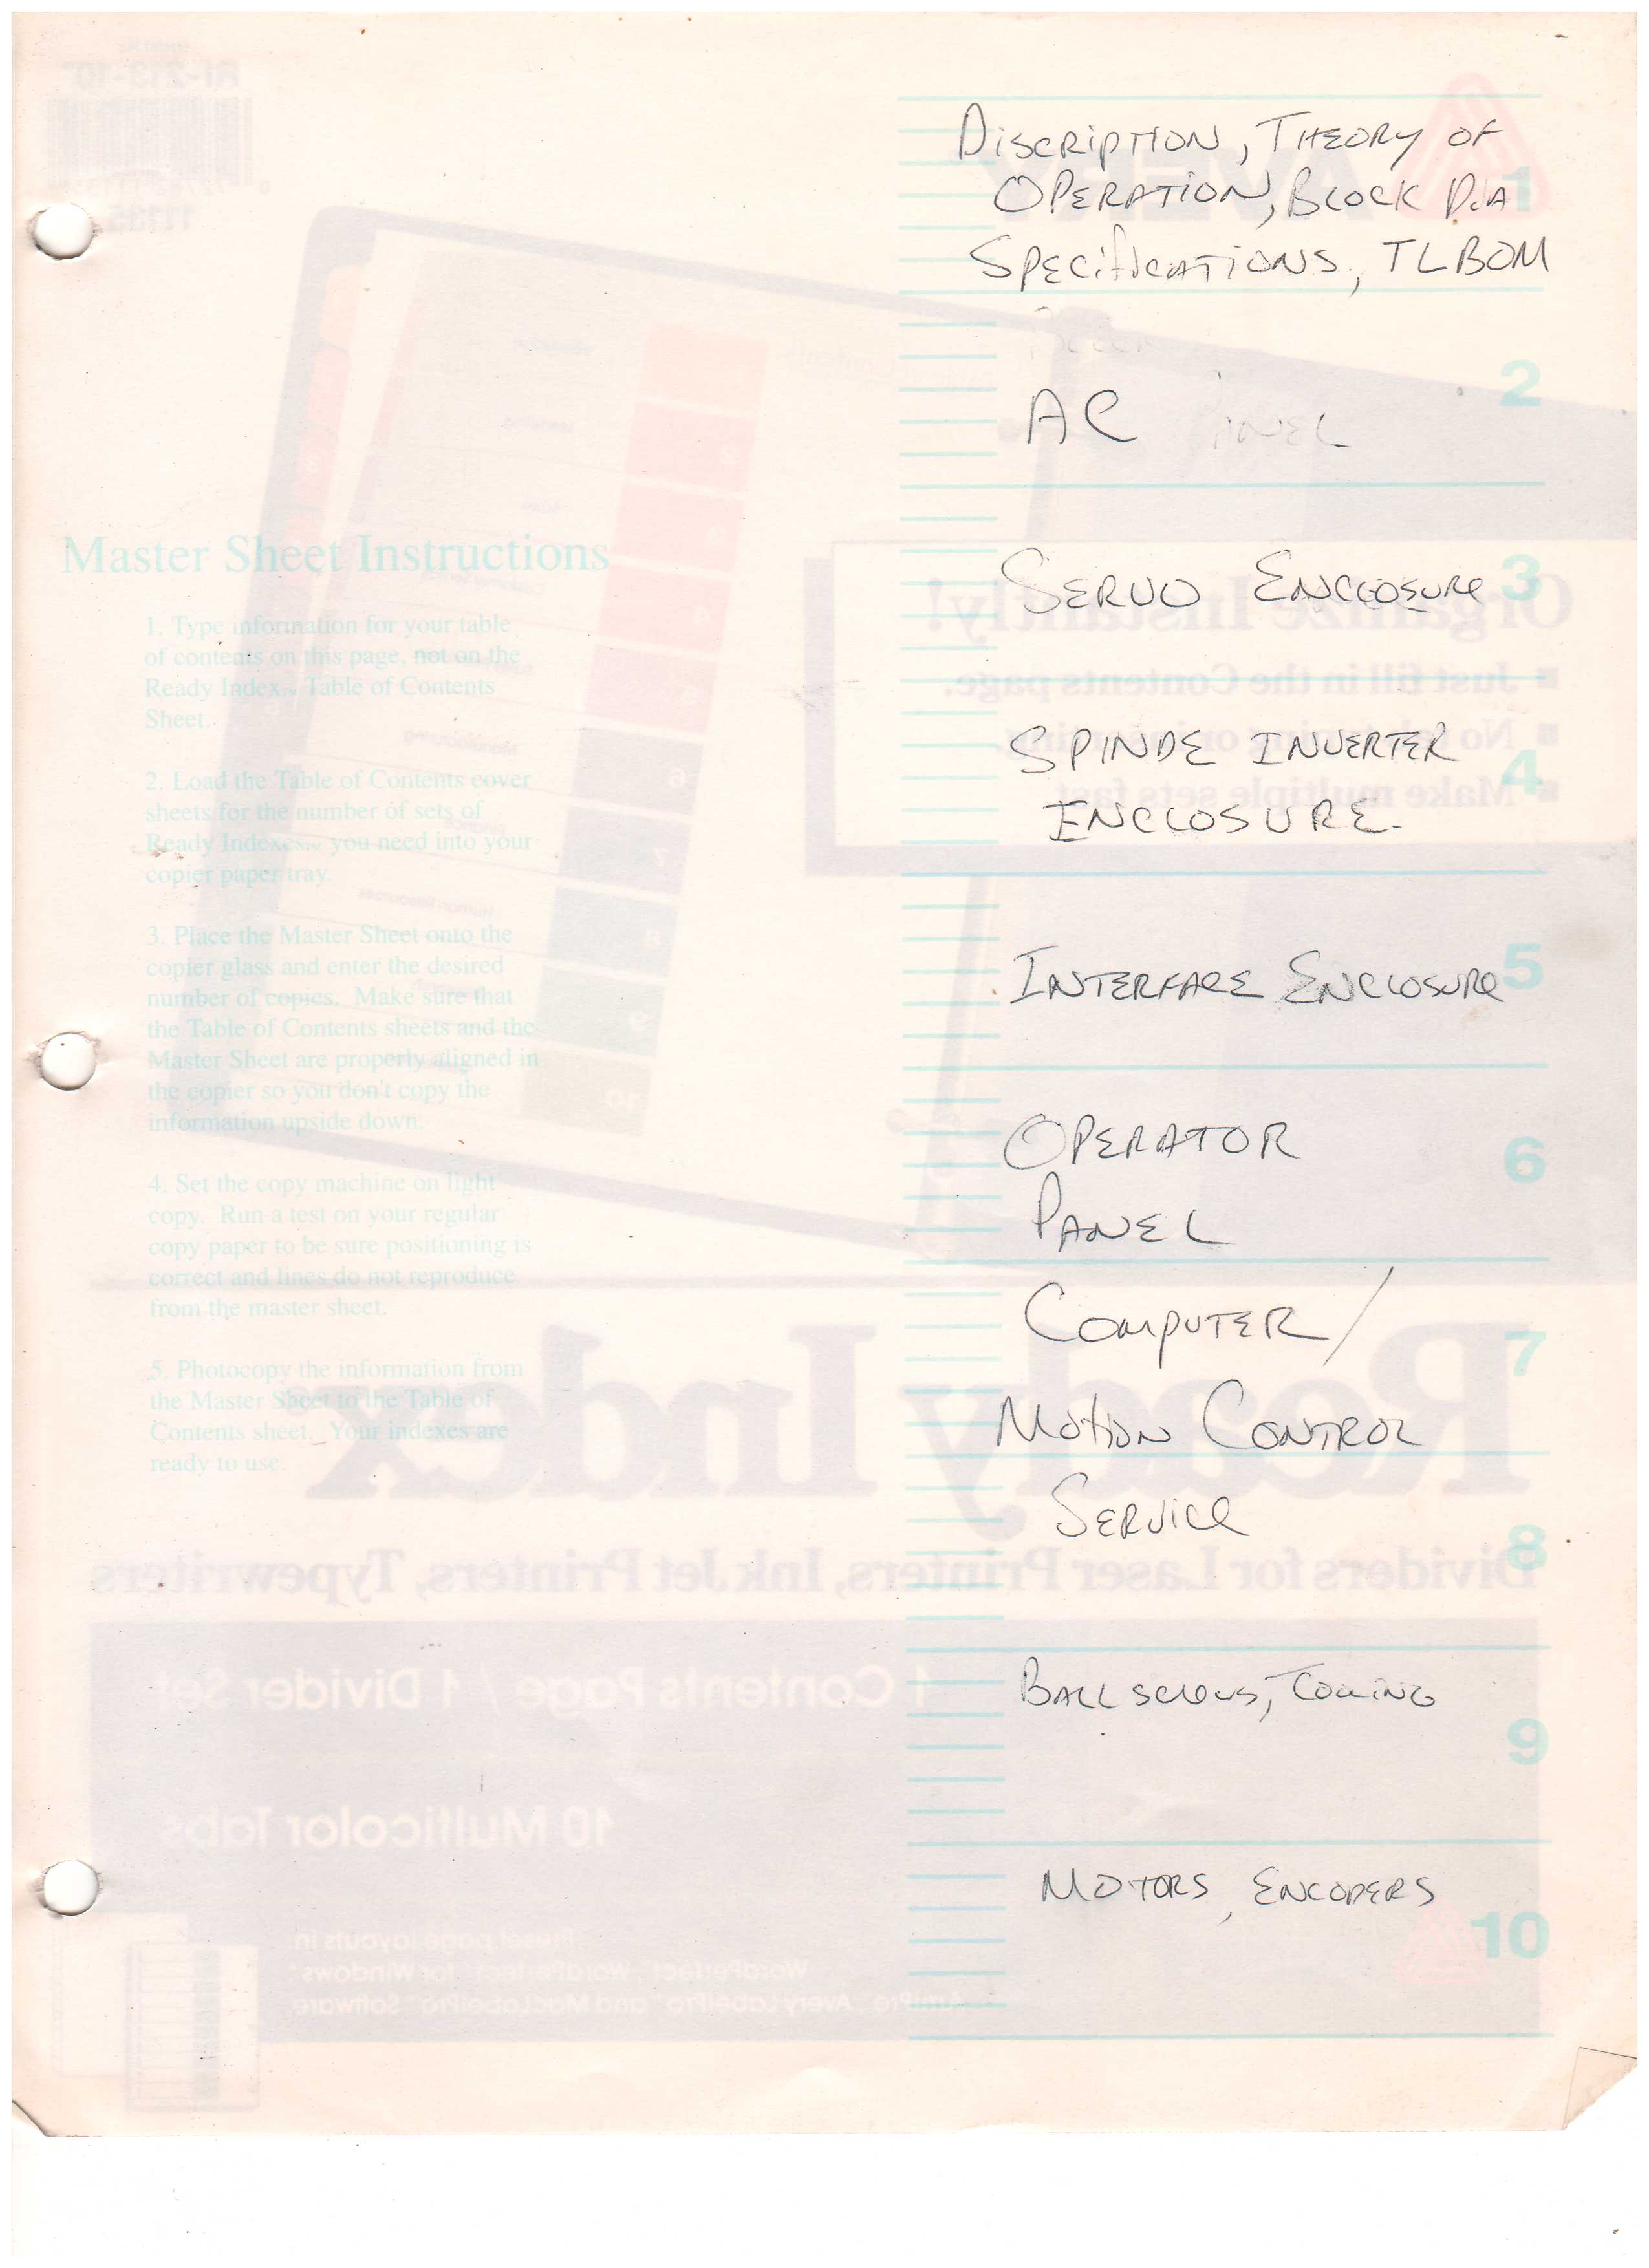 Master Sheet Instructions
1. Type information for your table
of contents on this page, not on the
Ready Index™ Table of Contents
Sheet.
2. Load the Table of Contents cover
sheets for the number of sets of
Ready Indexes™ you need into your
copier paper tray.
3. Place the Master Sheet onto the
copier glass and enter the desired
number of copies. Make sure that
the Table of Contents sheets and the
Master Sheet are properly aligned in
the copier so you don't copy the
information upside down.
4. Set the copy machine on light
copy. Run a test on your regular
copy paper to be sure positioning is
correct and lines do not reproduce
from the master sheet.
5. Photocopy the information from
the Master Sheet to the Table of
Contents sheet. Your indexes are
ready to use.
DISCRIPTION, THEORY OF
OPERATION, BLOCK DIA 1
SPECIFICATIONS, TLBOM
2
AC PANEL
SERVO ENCLOSURE 3
SPINDE INVERTER
4
ENCLOSURE.
INTERFACE ENCLOSURE 5
OPERATOR 6
PANEL
COMPUTER/
7
MOTION CONTROL
SERVICE
8
BALL SCREWS, COOLING
9
MOTORS, ENCODERS
10
AVERY
RI-213-10
11135
Organize Instantly!
Just fill in the Contents page.
Make multiple sets fast
Ready Index
Dividers for Laser Printers, Ink Jet Printers, Typewriters
1 Contents Page / 1 Divider Set
10 Multicolor Tabs
Preset page layouts in